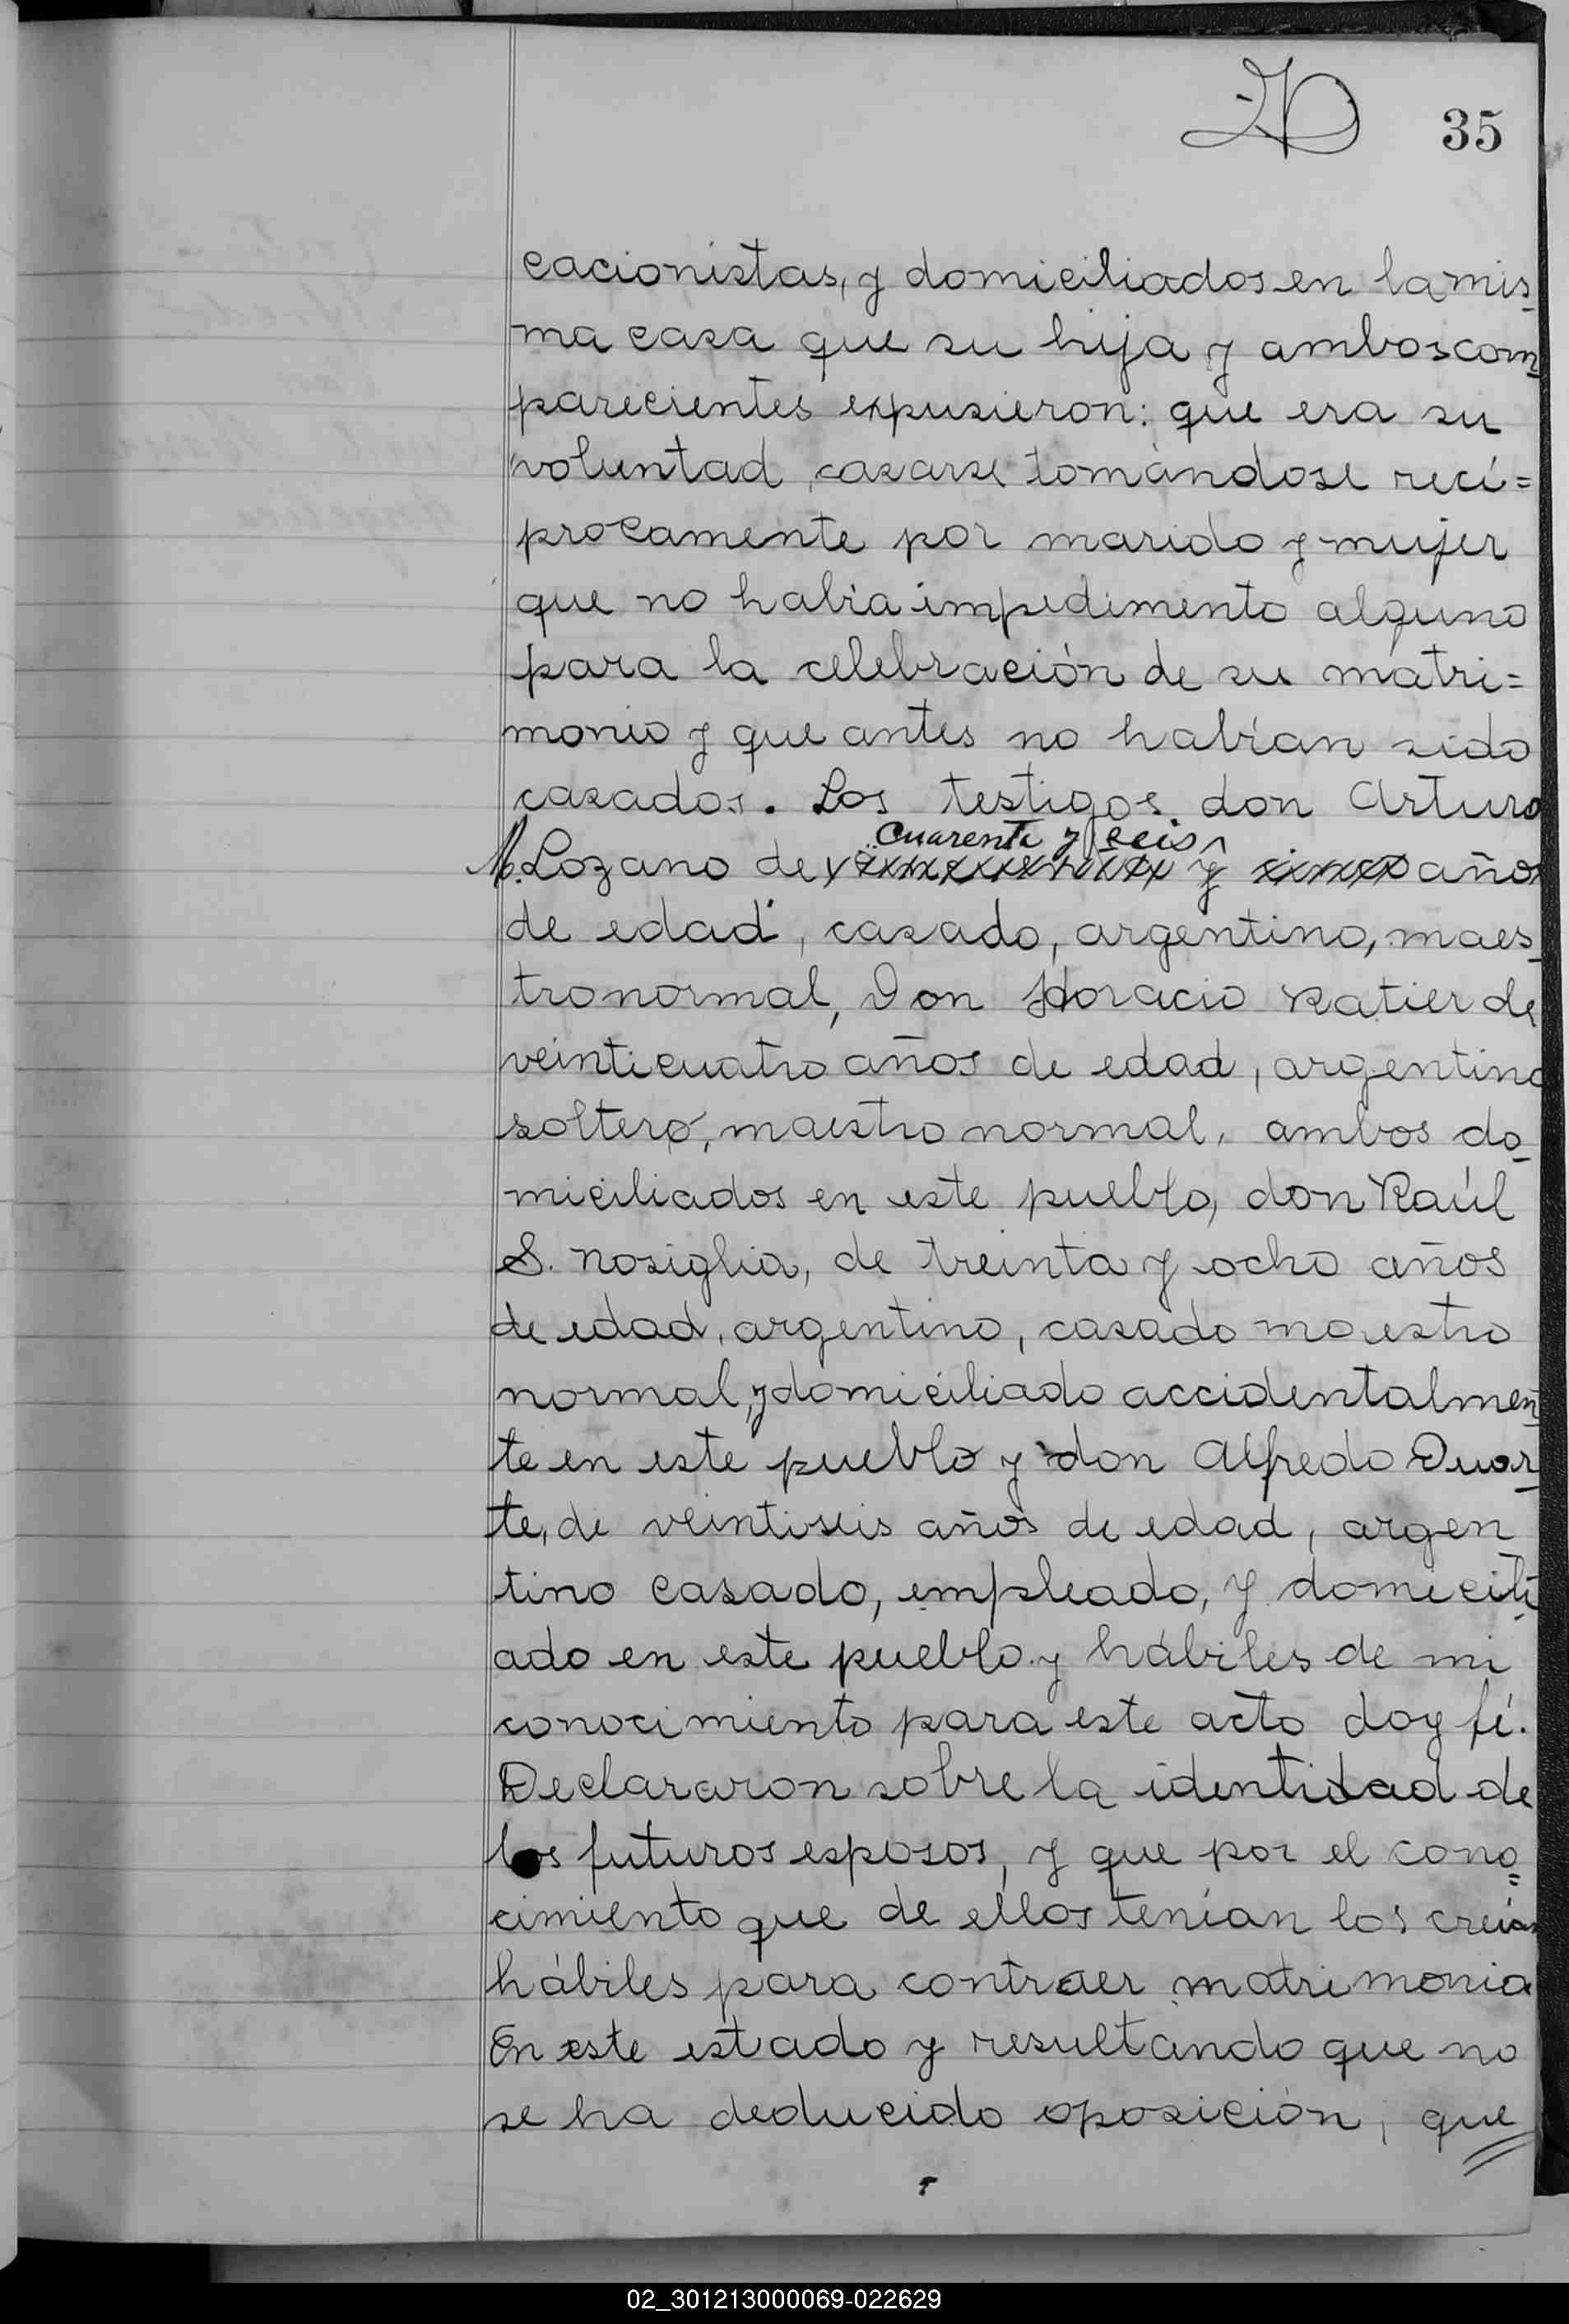 35
cacionistas, y domiciliados en la mis-
ma casa que su hija y ambos com-
parecientes expusieron: que era su
voluntad casarse tomándose recí=
procamente por marido y mujer
que no había impedimento alguno
para la celebración de su matri=
monio y que antes no habían sido
casados. Los testigos don Arturo
cuarenta y seis
M. Lozano de y años
de edad, casado, argentino, maes-
tro normal, Don Horacio Ratier de
veinticuatro años de edad, argentino
soltero, maestro normal, ambos do-
miciliados en este pueblo, don Raúl
S. Nosiglia, de treinta y ocho años
de edad, argentino, casado maestro
normal, y domiciliado accidentalmen-
te en este pueblo y don Alfredo Duar-
te, de veintiseis años de edad, argen-
tino casado, empleado, y domicili-
ado en este pueblo y hábiles de mi
conocimiento para este acto doy fé.
Declararon sobre la identidad de
los futuros esposos, y que por el cono=
cimiento que de ellos tenían los creían
hábiles para contraer matrimonio
En este estado y resultando que no
se ha deducido oposición, que
02_301213000069-022629